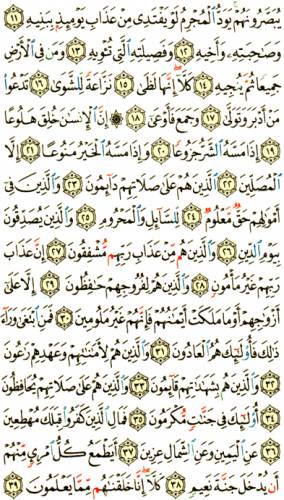 يُبَصَّرُونَهُمْ يَوَدُّ ٱلْمُجْرِمُ لَوْ يَفْتَدِى مِنْ عَذَابِ يَوْمِئِذٍۭ بِبَنِيهِ ١١
وَصَٰحِبَتِهِۦ وَأَخِيهِ ١٢ وَفَصِيلَتِهِ ٱلَّتِى تُـْٔوِيهِ ١٣ وَمَن فِى ٱلْأَرْضِ
جَمِيعًا ثُمَّ يُنجِيهِ ١٤ كَلَّآ إِنَّهَا لَظَىٰ ١٥ نَزَّاعَةً لِّلشَّوَىٰ ١٦ تَدْعُوا۟
مَنْ أَدْبَرَ وَتَوَلَّىٰ ١٧ وَجَمَعَ فَأَوْعَىٰٓ ١٨ ۞ إِنَّ ٱلْإِنسَٰنَ خُلِقَ هَلُوعًا
١٩ إِذَا مَسَّهُ ٱلشَّرُّ جَزُوعًا ٢٠ وَإِذَا مَسَّهُ ٱلْخَيْرُ مَنُوعًا ٢١ إِلَّا
ٱلْمُصَلِّينَ ٢٢ ٱلَّذِينَ هُمْ عَلَىٰ صَلَاتِهِمْ دَآئِمُونَ ٢٣ وَٱلَّذِينَ فِىٓ
أَمْوَٰلِهِمْ حَقٌّ مَّعْلُومٌ ٢٤ لِّلسَّآئِلِ وَٱلْمَحْرُومِ ٢٥ وَٱلَّذِينَ يُصَدِّقُونَ
بِيَوْمِ ٱلدِّينِ ٢٦ وَٱلَّذِينَ هُم مِّنْ عَذَابِ رَبِّهِم مُّشْفِقُونَ ٢٧ إِنَّ عَذَابَ
رَبِّهِمْ غَيْرُ مَأْمُونٍ ٢٨ وَٱلَّذِينَ هُمْ لِفُرُوجِهِمْ حَٰفِظُونَ ٢٩ إِلَّا عَلَىٰٓ
أَزْوَٰجِهِمْ أَوْ مَا مَلَكَتْ أَيْمَٰنُهُمْ فَإِنَّهُمْ غَيْرُ مَلُومِينَ ٣٠ فَمَنِ ٱبْتَغَىٰ وَرَآءَ
ذَٰلِكَ فَأُو۟لَٰٓئِكَ هُمُ ٱلْعَادُونَ ٣١ وَٱلَّذِينَ هُمْ لِأَمَٰنَٰتِهِمْ وَعَهْدِهِمْ رَٰعُونَ
٣٢ وَٱلَّذِينَ هُم بِشَهَٰدَٰتِهِمْ قَآئِمُونَ ٣٣ وَٱلَّذِينَ هُمْ عَلَىٰ صَلَاتِهِمْ يُحَافِظُونَ
٣٤ أُو۟لَٰٓئِكَ فِى جَنَّٰتٍ مُّكْرَمُونَ ٣٥ فَمَالِ ٱلَّذِينَ كَفَرُوا۟ قِبَلَكَ مُهْطِعِينَ
٣٦ عَنِ ٱلْيَمِينِ وَعَنِ ٱلشِّمَالِ عِزِينَ ٣٧ أَيَطْمَعُ كُلُّ ٱمْرِئٍ مِّنْهُمْ
أَن يُدْخَلَ جَنَّةَ نَعِيمٍ ٣٨ كَلَّآ إِنَّا خَلَقْنَٰهُم مِّمَّا يَعْلَمُونَ ٣٩